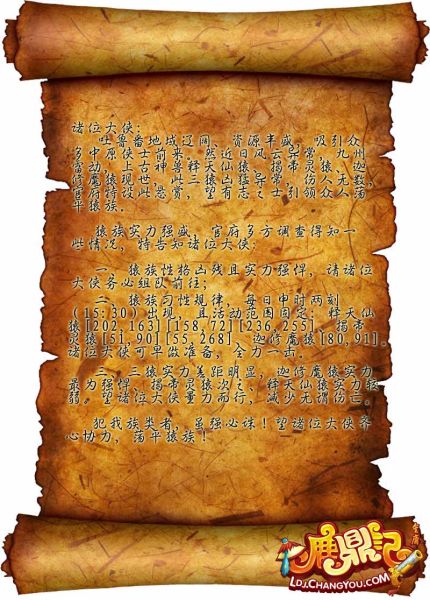 诸位大侠：
吐鲁番地域辽阔，资源丰盛，吸引众
多中原侠士前来。然近日风云异常，九州
震动，上古神兽释天仙猿、揭帝灵猿、迦
修魔猿现世，此三猿凶猛异常，伤人无数，
官府特设此悬赏，望有志之士引领众人荡
平猿族。
猿族实力强盛，官府多方调查得知一
些情况，特告知诸位大侠：
一、猿族性格凶残且实力强悍，请诸位
大侠务必组队前往；
二、猿族习性规律，每日申时两刻
（15：30）出现，且活动范围固定：释天仙
猿[202,163][158,72][236,255]、揭帝
灵猿[51,90][55,268]、迦修魔猿[80,91]。
诸位大侠可早做准备，全力一击。
三、三猿实力差距明显，迦修魔猿实力
最为强悍，揭帝灵猿次之，释天仙猿实力较
弱。望诸位大侠量力而行，减少无谓伤亡。
犯我族类者，虽强必诛！望诸位大侠齐
心协力，荡平猿族！
鹿鼎记
LDJ.CHANGYOU.COM